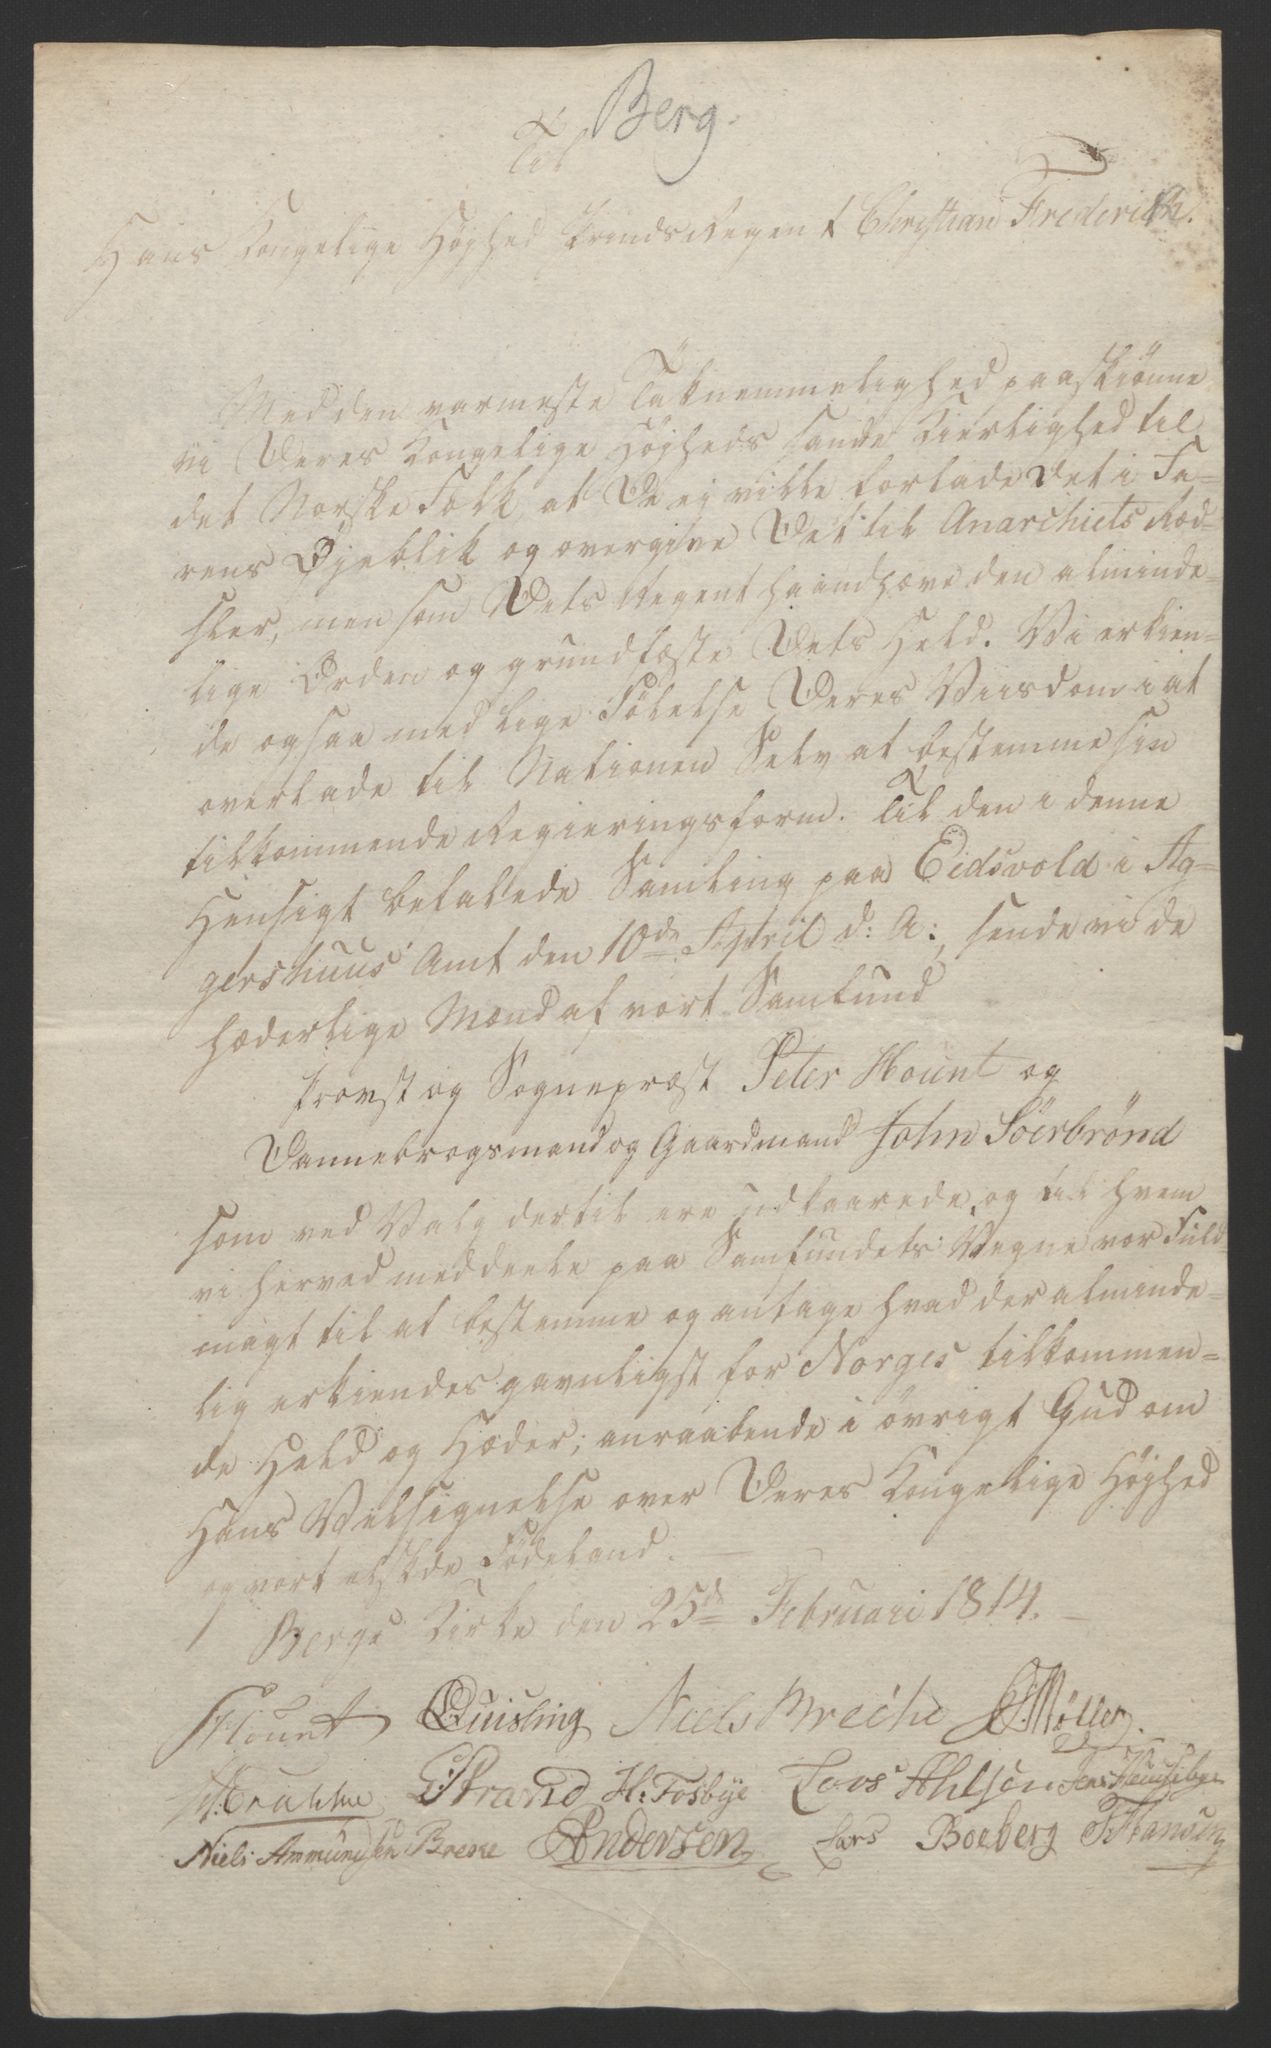 Berg.
Til
Hans Kongelige Høyhed Prinds Regent Christian Frederik.
Med den varmeste Taknemmelighed paaskiønne
vi Deres Kongelige Højheds sande Kierlighed til
det Norske Folk, at De ej ville forlade Det i Fa-
rens Øjeblik og overgive Det til Anarchiets Ræd-
sler, men som Dets Regent haandhæve den alminde-
lige Orden og grundfæste Dets Held. Vi erkien-
de ogsaa med lige Følelse Deres Viisdom i at
overlade til Nationen Selv at bestemme sin
tilkommende Regieringsform. Til den i denne
Hensigt befalede Samling paa Eidsvold i Ag-
gershuus Amt den 10de April d: A:, sende vi de
hæderlige Mænd af vort Samfund
Provst og Sognepræst Peter Hount og
Dannebrogsmand og Gaardmand John Sörbrönd
som ved Valg dertil ere udkaarede, og til hvem
vi herved meddeele paa Samfundets Vegne vor Fuld-
magt til at bestemme og antage hvad der alminde-
lig erkiendes gavnligst for Norges tilkommen-
de Held og Hæder; anraabende i övrigt Gud om
Hans Velsignelse over Deres Kongelige Höyhed
og vort elskede Födeland. —
Bergs Kirke den 25de Februari 1814. —
Hount Quisling Niels Breche Möller.
Strand H: Fosbye Lars Ahlsen Jens
Niels Ammundsen Breke Andersen Lars Boeberg Hansen